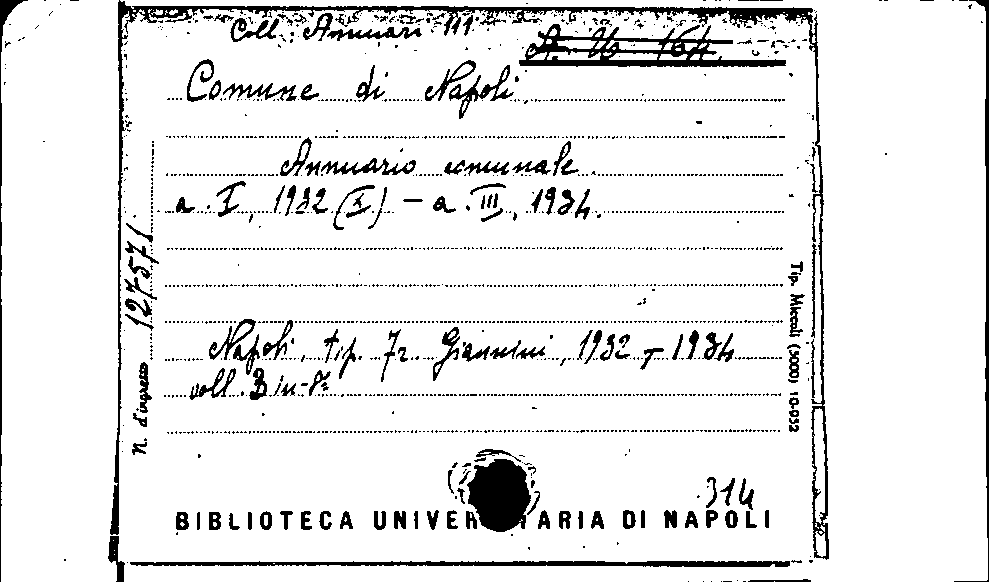 Coll. Annuari 111
A. Ub 164
Comune di Napoli
Annuario comunale
a. I, 1932 (X) – a. III, 1934.
Napoli, tip. Fr. Giannini, 1932 – 1934
voll. 3 in-8º
N. d'ingresso 127571
Tip. Miccoli (5000) 10-952
314
BIBLIOTECA UNIVER TARIA DI NAPOLI